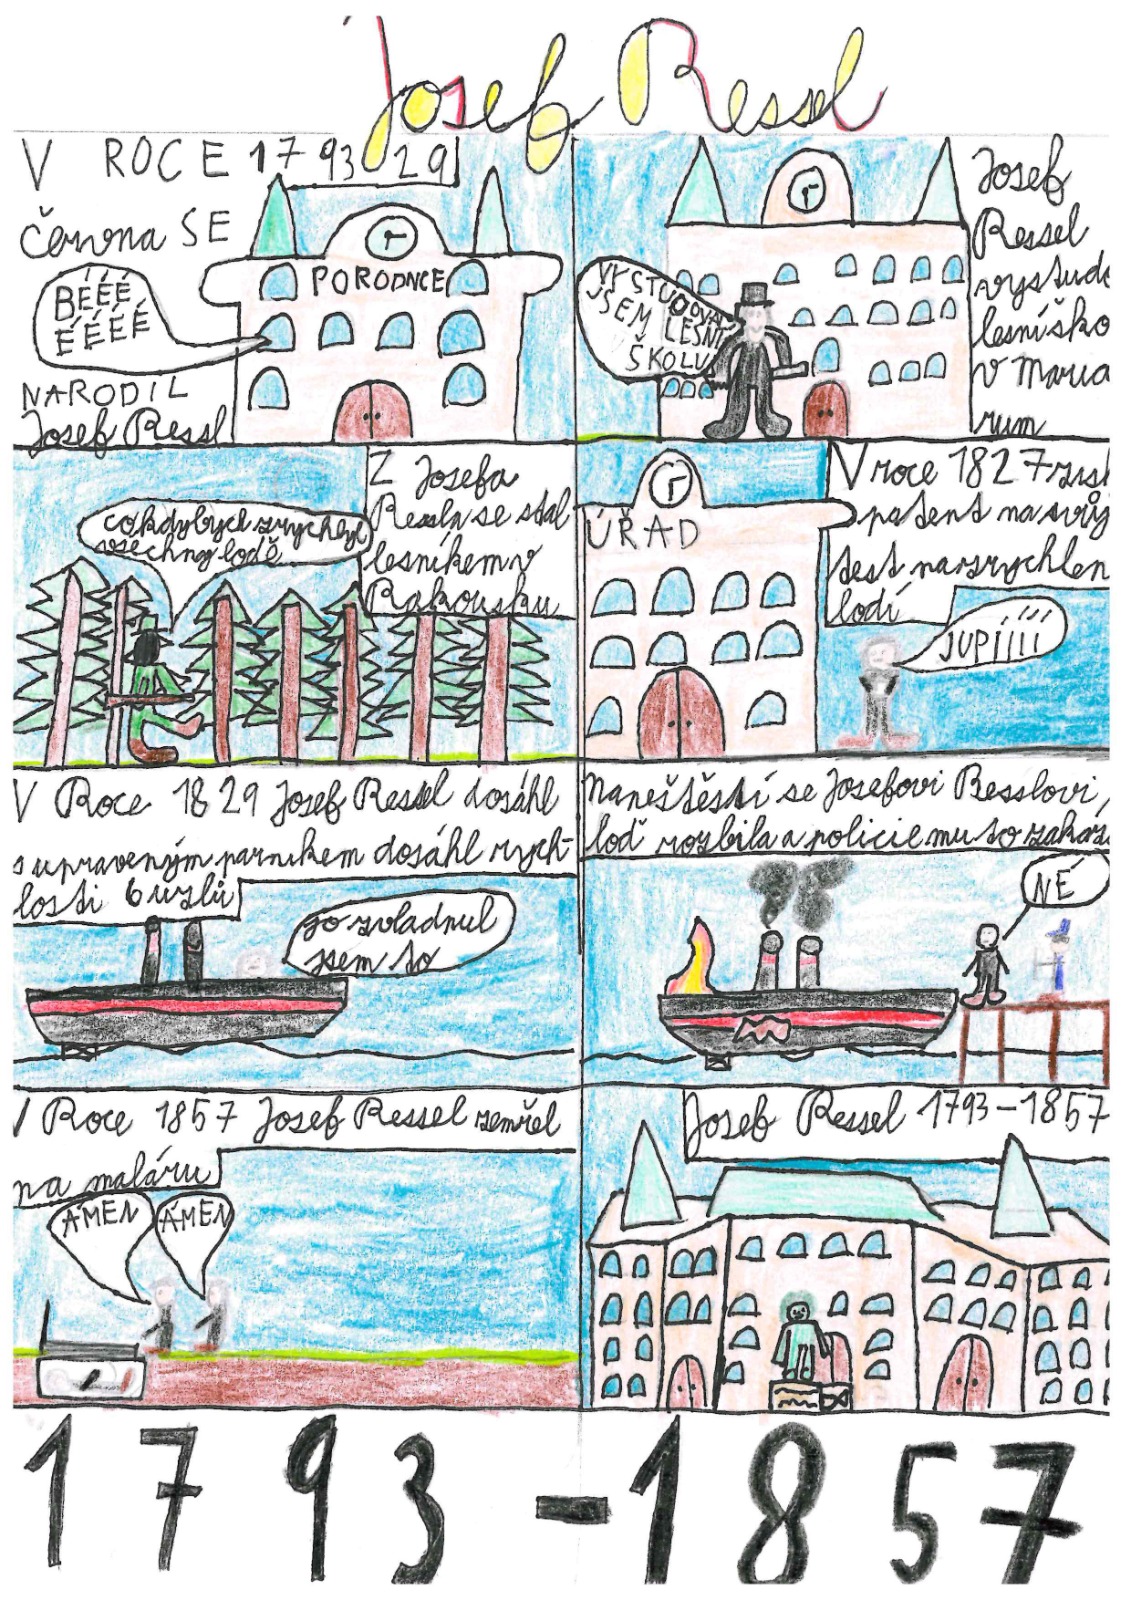 Josef Ressl
V ROCE 1793 29
Června SE
BÉÉÉ
ÉÉÉÉ
PORODNCE
NARODIL
Josef Ressl
VYSTUDOVAL
JSEM LESNÍ
ŠKOLU
Josef
Ressel
vystudo
lesní ško
v Maria
rum
Z Josefa
Ressla se stal
lesníkem v
Rakousku
co kdybych zrychlyl
všechny lodě
V roce 1827 získ
patent na svůj
test na zrychlen
lodí
ÚŘAD
JUPÍÍÍÍ
V Roce 1829 Josef Ressel dosáhl
s upraveným parníkem dosáhl rych-
losti 6 uzlů
jo zvladnul
jsem to
Naneštěstí se Josefovi Resslovi,
loď rozbila a policie mu to zakáz
NÉ
V Roce 1857 Josef Ressel zemřel
na maláru
ÁMEN
ÁMEN
Josef Ressel 1793-1857
1793-1857